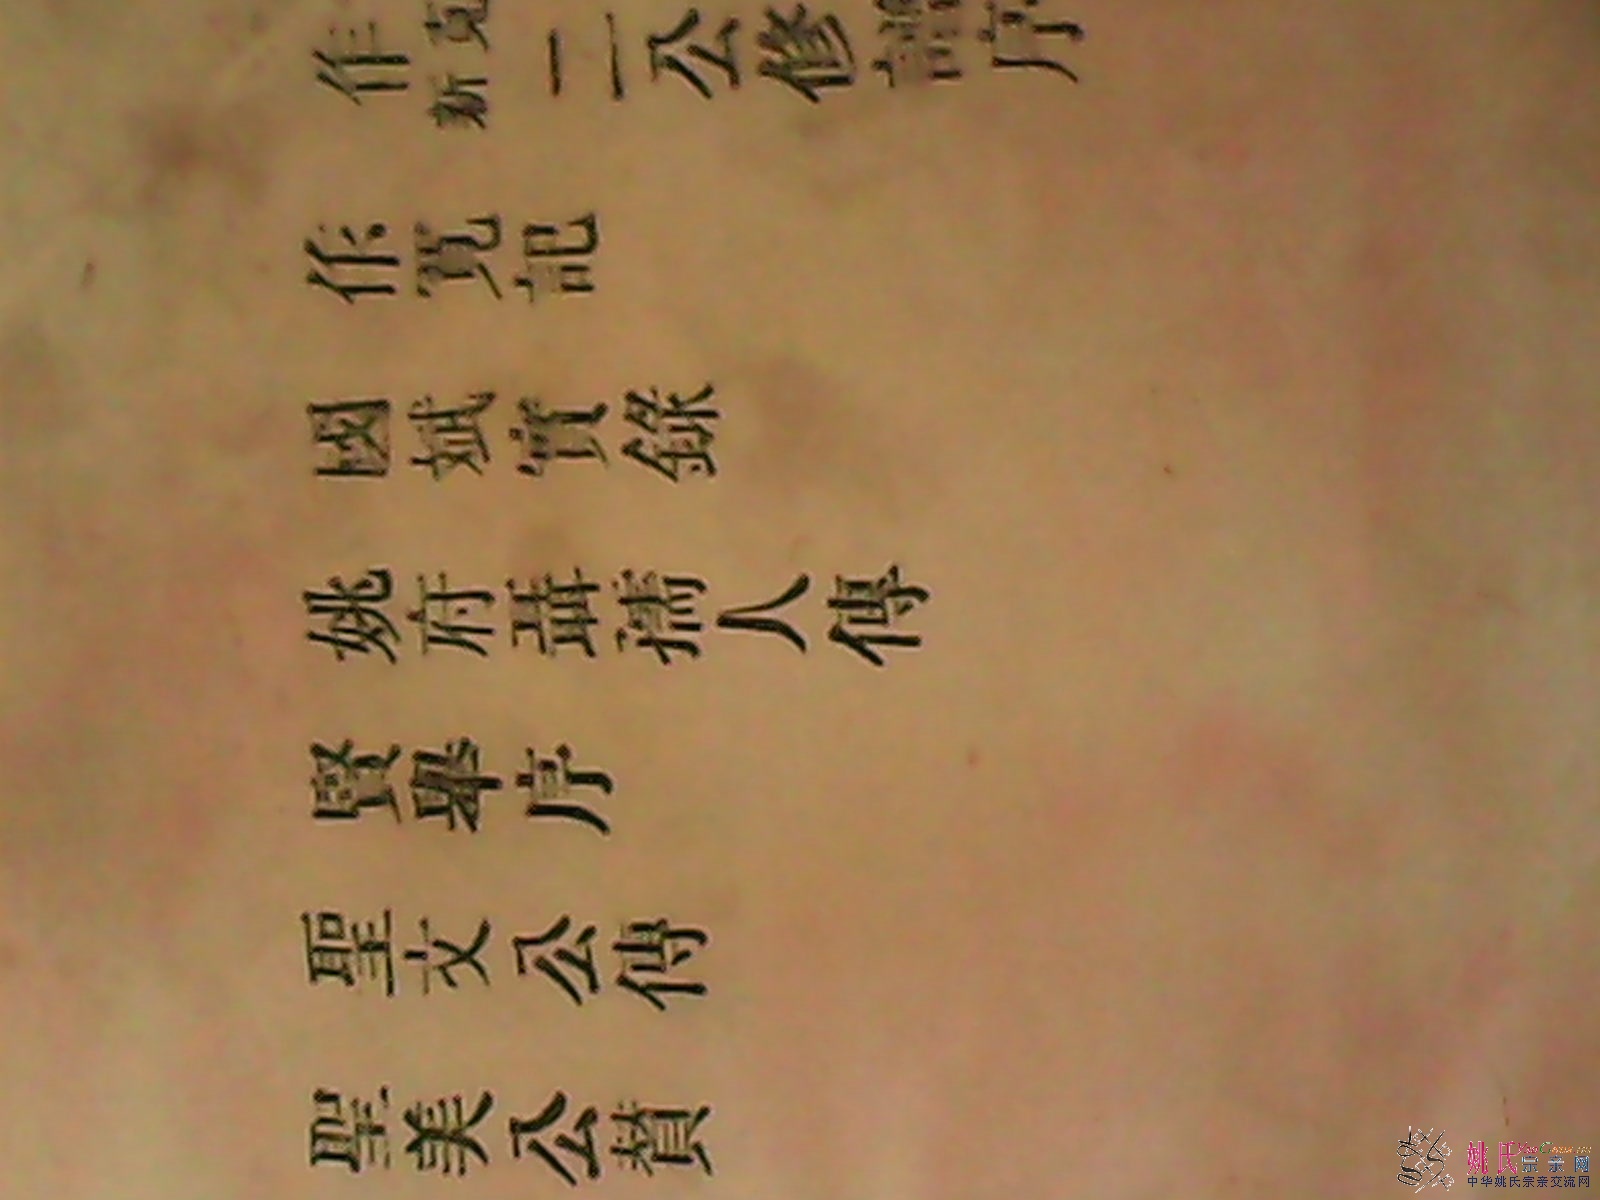 作寬新二公修譜序
作寬記
國斌實錄
姚府聶孺人傳
賢舉序
聖文公傳
聖美公賛
姚氏宗亲网
中华姚氏宗亲交流网